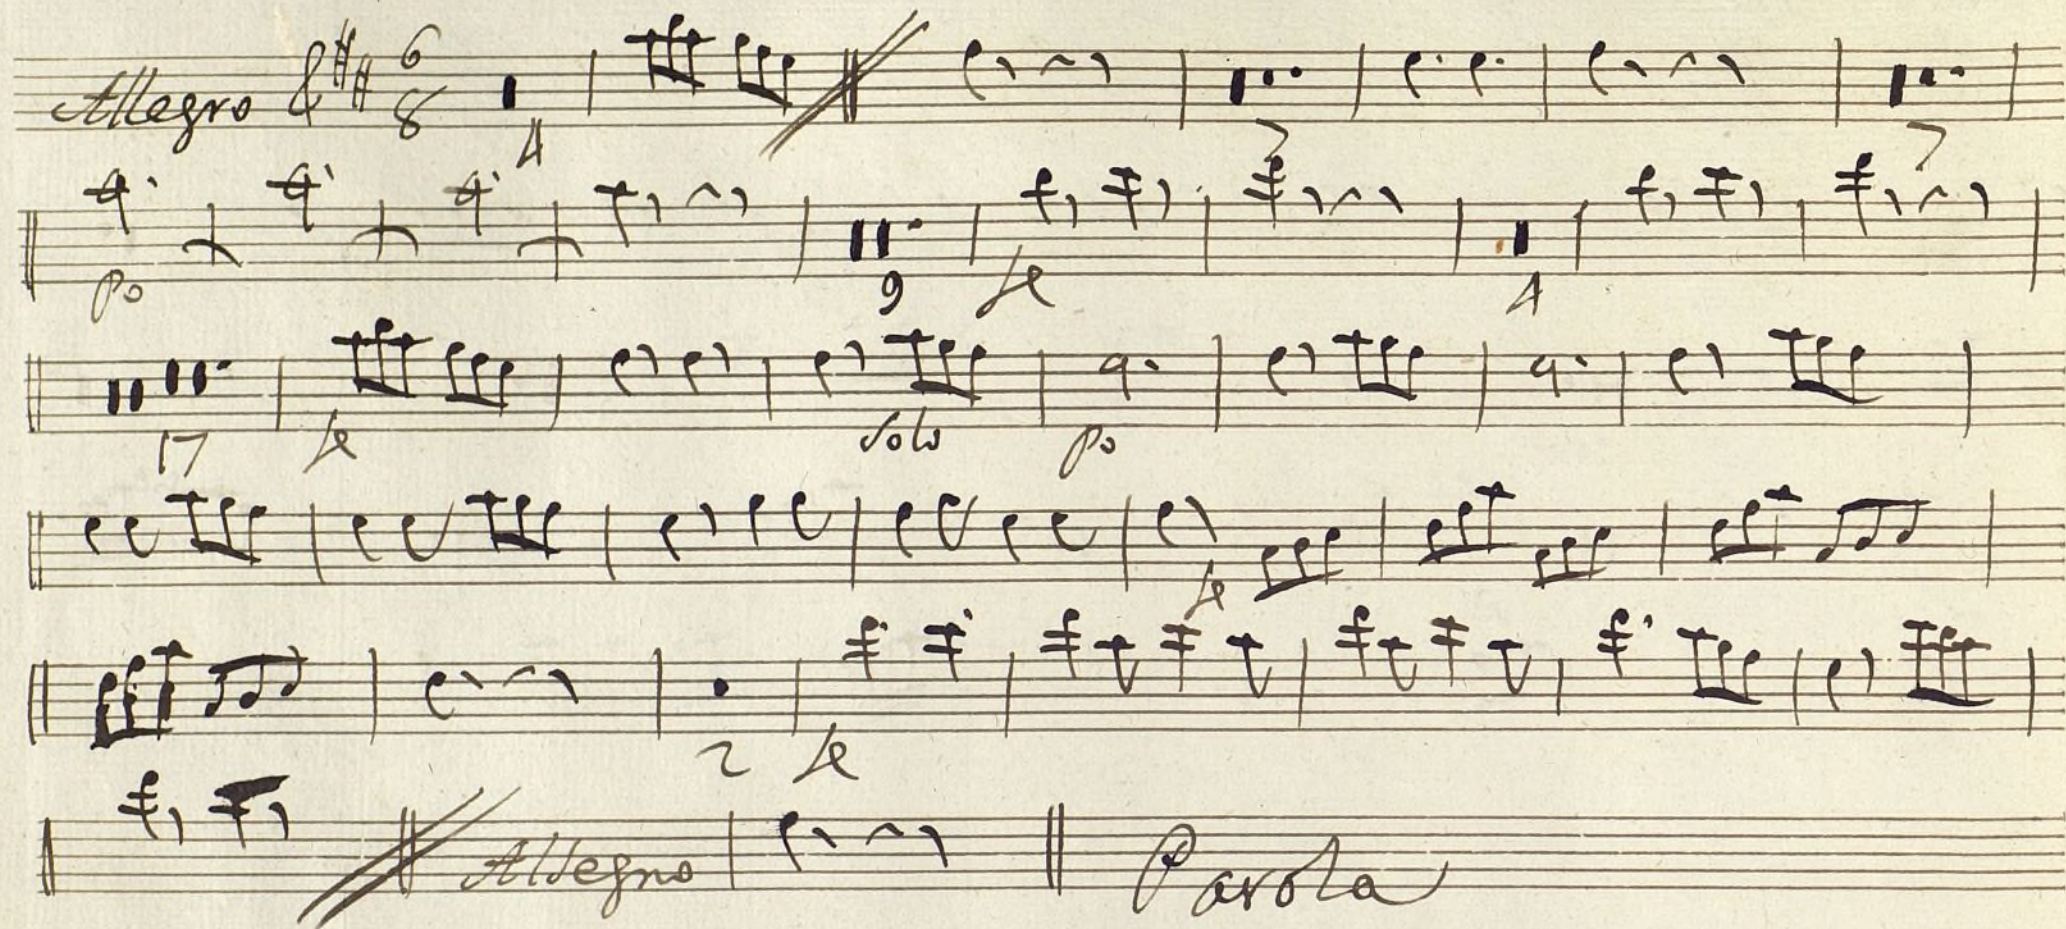 Allegro 6 8 4 7 7
po 9 fe 4
17 fe Solo po
fe
2 fe
Allegro Parola